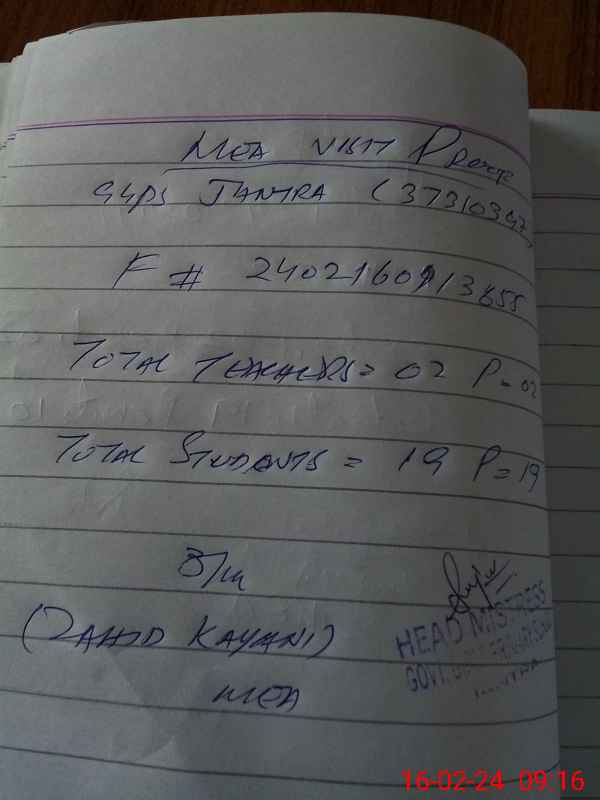 MEA VISIT PROOF
GGPS JANTRA (37310347
F # 2402160913655
TOTAL TEACHERS = 02 P = 02
TOTAL STUDENTS = 19 P = 19
(ZAHID KAYANI)
MEA
HEAD MISTRESS
GOVT.
16-02-24 09:16